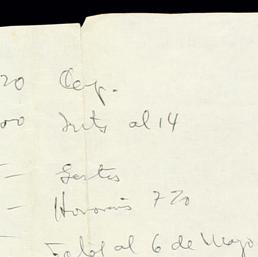 20 Cap.
00 Ints al 14
= Gastos
- Honorarios 7%
Total al 6 de Mayo